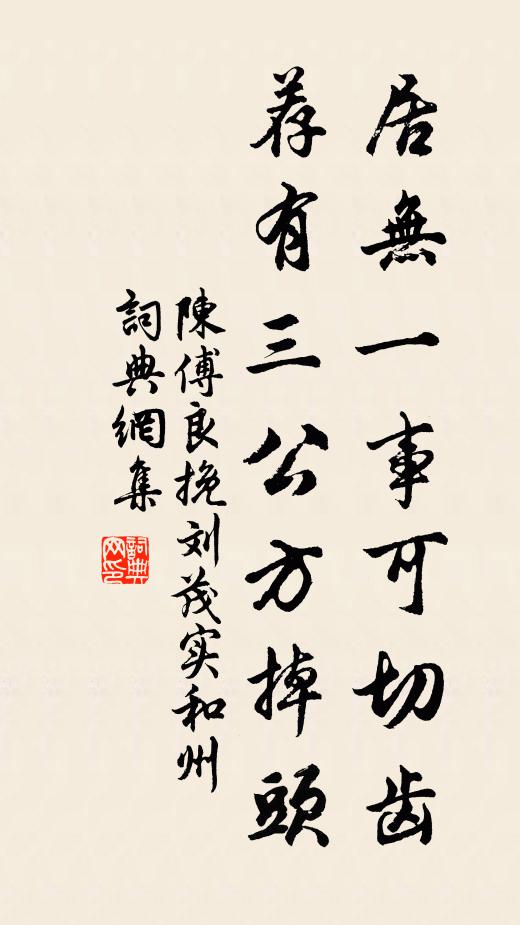 居無一事可切齿
荐有三公方掉頭
陳傅良挽刘茂实和州
詞典網集
詞典网印